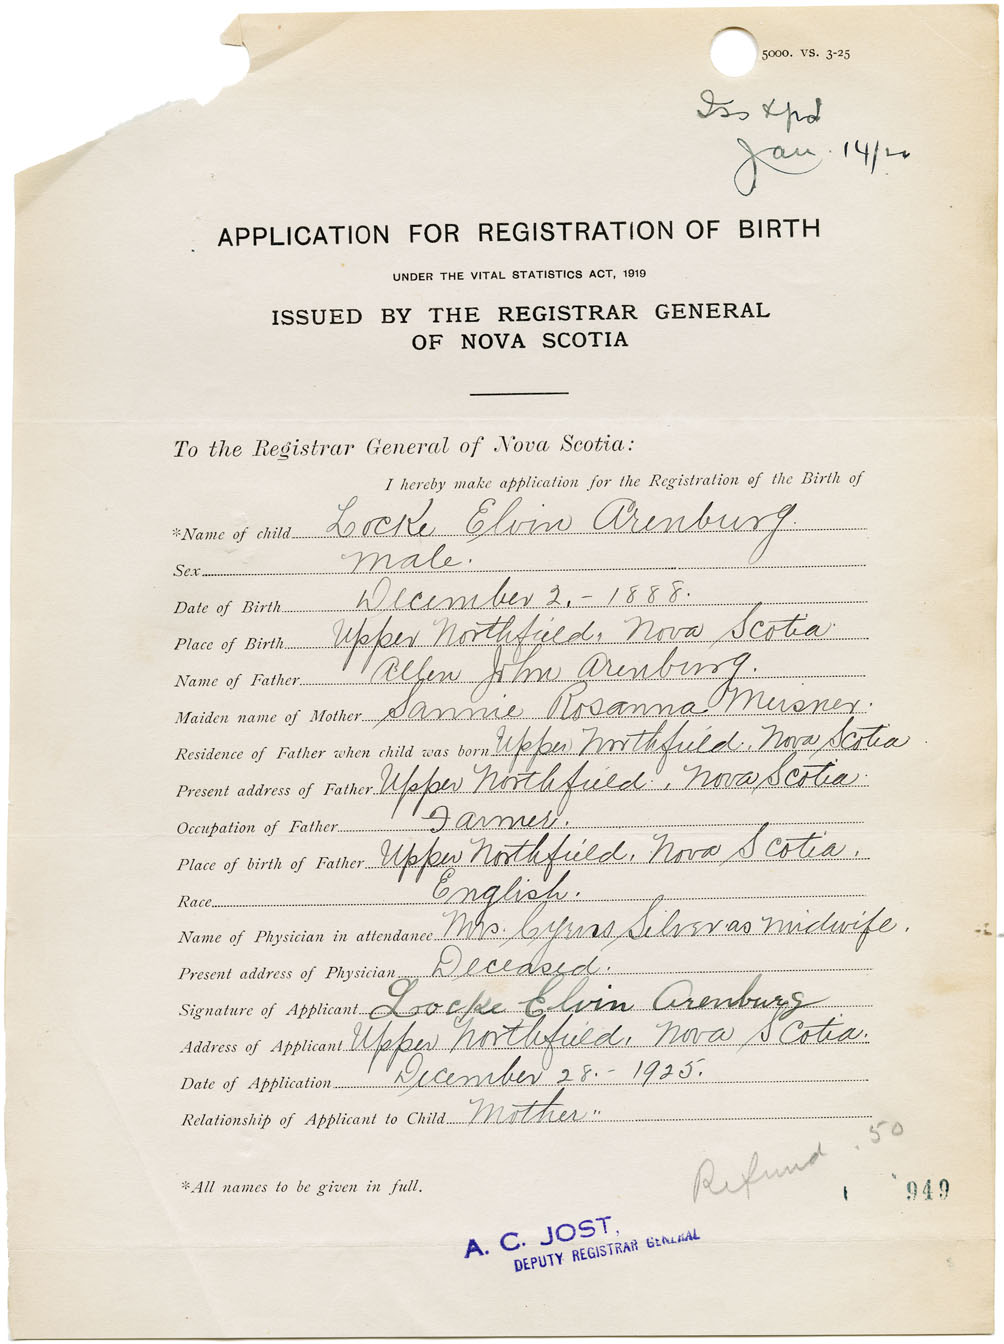 5000. VS. 3-25
Iss & pd
Jan. 14/26
APPLICATION FOR REGISTRATION OF BIRTH
UNDER THE VITAL STATISTICS ACT, 1919
ISSUED BY THE REGISTRAR GENERAL
OF NOVA SCOTIA
To the Registrar General of Nova Scotia:
I hereby make application for the Registration of the Birth of
*Name of child Locke Elvin Arenburg.
Sex male.
Date of Birth December 2.- 1888.
Place of Birth Upper Northfield, Nova Scotia
Name of Father Allen John Arenburg.
Maiden name of Mother Sannie Rosanna Meisner.
Residence of Father when child was born Upper Northfield, Nova Scotia
Present address of Father Upper Northfield, Nova Scotia
Occupation of Father Farmer.
Place of birth of Father Upper Northfield, Nova Scotia.
Race English.
Name of Physician in attendance Mrs. Cyrus Silver as midwife.
Present address of Physician Deceased.
Signature of Applicant Locke Elvin Arenburg
Address of Applicant Upper Northfield, Nova Scotia.
Date of Application December 28.- 1925.
Relationship of Applicant to Child Mother"
Refund .50
*All names to be given in full.
949
A. C. JOST,
DEPUTY REGISTRAR GENERAL